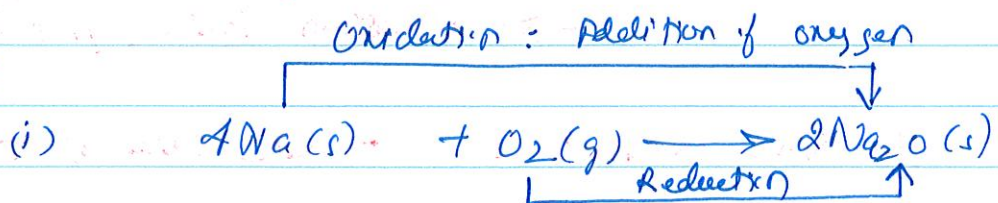 Oxidation : Addition of oxygen
(i) 4Na (s) + O₂(g) ⟶ 2Na₂O (s)
Reduction